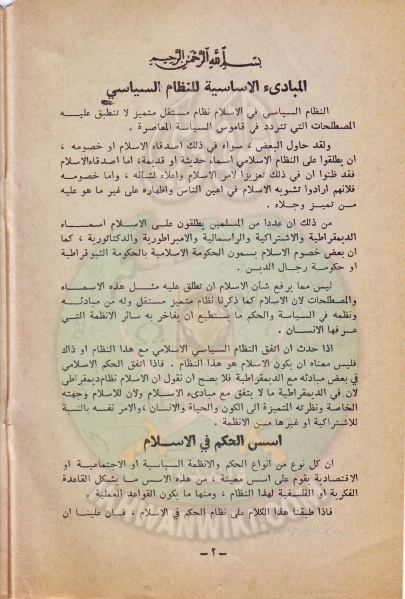 بسم الله الرحمن الرحيم
المبادىء الاساسية للنظام السياسي
النظام السياسي في الاسلام نظام مستقل متميز لا تنطبق عليه
المصطلحات التي تتردد في قاموس السياسة المعاصرة .
ولقد حاول البعض ، سواء في ذلك اصدقاء الاسلام او خصومه ،
ان يطلقوا على النظام الاسلامي اسماء حديثة او قديمة، اما اصدقاءالاسلام
فقد ظنوا ان في ذلك تعزيزا لامر الاسلام واعلاء لشأنه ، واما خصومه
فلانهم ارادوا تشويه الاسلام في اعين الناس واظهاره على غير ما هو عليه
من تميز وجلاء .
من ذلك ان عددا من المسلمين يطلقون على الاسلام اسماء
الديمقراطية والاشتراكية والرأسمالية والامبراطورية والدكتاتورية ، كما
ان بعض خصوم الاسلام يسمون الحكومة الاسلامية بالحكومة الثيوقراطية
او حكومة رجال الدين .
ليس مما يرفع شأن الاسلام ان تطلق عليه مثل هذه الاسماء
والمصطلحات لان الاسلام كما ذكرنا نظام متميز مستقل وله من مبادئه
ونظمه في السياسة والحكم ما يستطيع ان يفاخر به سائر الانظمة التي
عرفها الانسان .
اذا حدث ان اتفق النظام السياسي الاسلامي مع هذا النظام او ذاك
فليس معناه ان يكون الاسلام هو هذا النظام . فاذا اتفق الحكم الاسلامي
في بعض مبادئه مع الديمقراطية فلا يصح ان نقول ان الاسلام نظام‌ديمقراطي
لان في الديمقراطية ما لا يتفق مع مبادىء الاسلام ولان للاسلام وجهته
الخاصة ونظرته المتميزة الى الكون والحياة والانسان ،والامر نفسه بالنسبة
للاشتراكية او غيرها من الانظمة .
اسس الحكم في الاسلام
ان كل نوع من انواع الحكم والانظمة السياسية او الاجتماعية او
الاقتصادية يقوم على اسس معينة ، من هذه الاسس ما يشكل القاعدة
الفكرية او الفلسفية لهذا النظام ، ومنها ما يكون القواعد العملية .
فاذا طبقنا هذا الكلام على نظام الحكم في الاسلام ، فان علينا ان
- ٢ -